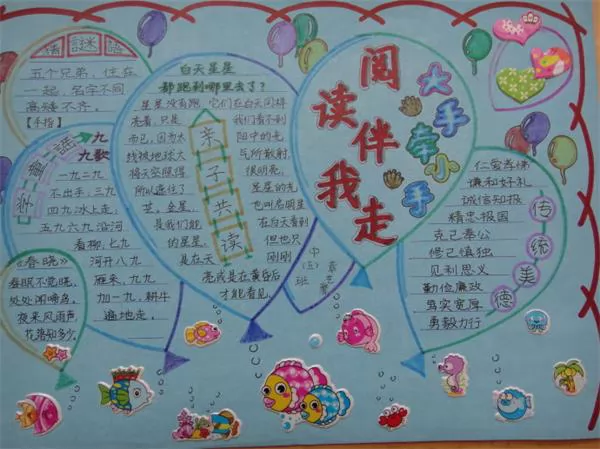 猜謎語
五个兄弟，住在
一起，名字不同
高矮不齐。
【手指】
学童谣
九九歌
一九二九
不出手，三九
四九冰上走，
五九六九沿河
看柳，七九
河开八九
雁来，九九
加一九，耕牛
遍地走。
《春晓》
春眠不觉晓，
处处闻啼鸟，
夜来风雨声，
花落知多少。
白天星星
都跑到哪里去了？
星星没有跑，它们在白天同样
亲子共读
亮着，只是
我们看不到
而已，因为太
阳中的光
线被地球大
气所散射，
将天空照得
很明亮，
所以遮住了
星星的光
芒。金星，
也叫启明星
是我们能
在白天看到
的星星，
但也只
是在天
刚刚
亮或是在黄昏后
才能看见。
阅读伴我走
大手牵小手
中（五）班
传统美德
仁爱孝悌
谦和好礼
诚信知报
精忠报国
克己奉公
修己慎独
见利思义
勤俭廉政
笃实宽厚
勇毅力行